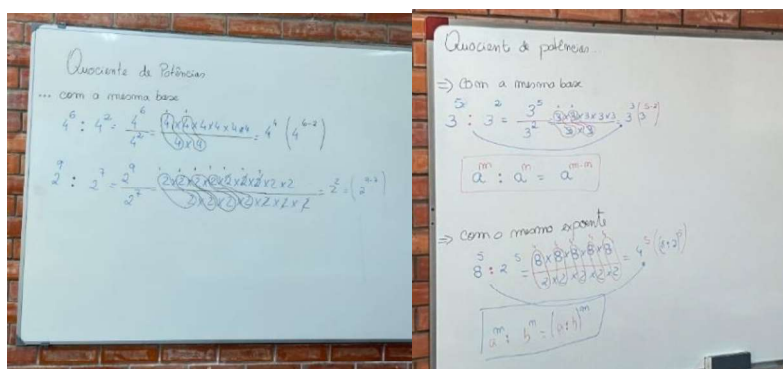 Quociente de Potências
... com a mesma base
4^6 : 4^2 = 4^6 / 4^2 = 4×4×4×4×4×4 / 4×4 = 4^4 (4^6-2)
2^9 : 2^7 = 2^9 / 2^7 = 2×2×2×2×2×2×2×2×2 / 2×2×2×2×2×2×2 = 2^2 = (2^9-7)
Quociente de potências...
⇒ Com a mesma base
3^5 : 3^2 = 3^5 / 3^2 = 3×3×3×3×3 / 3×3 = 3^3 (3^5-2)
a^m : a^n = a^m-n
⇒ Com o mesmo expoente
8^5 : 2^5 = 8×8×8×8×8 / 2×2×2×2×2 = 4^5 (8÷2)^5
a^m : b^m = (a:b)^m